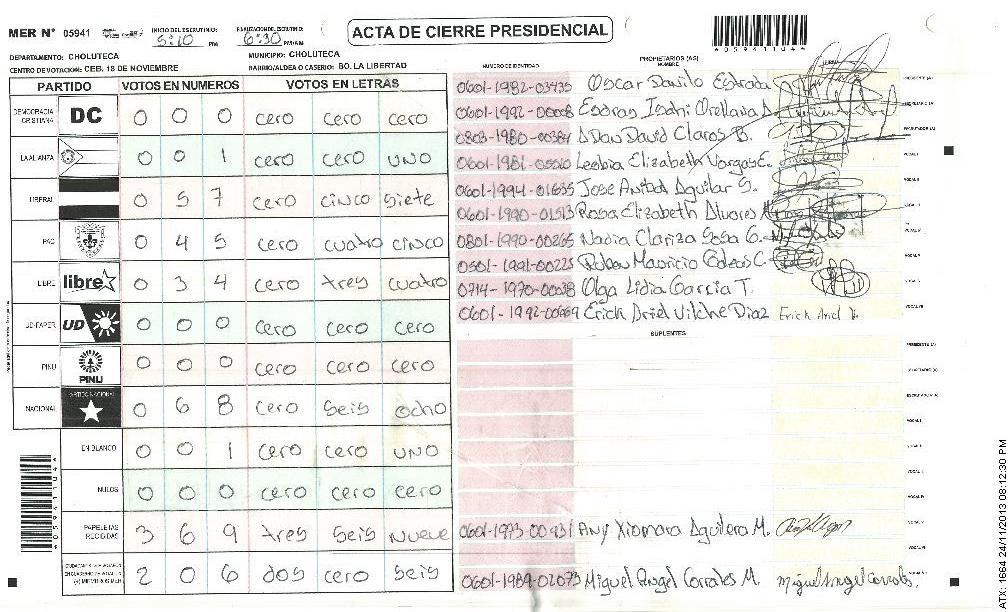 MER N° 05941
INICIO DEL ESCRUTINIO: 5:10 PM
FINALIZACION DE ESCRUTINIO: 6:30 PM/AM
ACTA DE CIERRE PRESIDENCIAL
A059411044
DEPARTAMENTO: CHOLUTECA
MUNICIPIO: CHOLUTECA
CENTRO DE VOTACION: CEB. 18 DE NOVIEMBRE
BARRIO/ALDEA O CASERIO: BO. LA LIBERTAD
PARTIDO VOTOS EN NUMEROS VOTOS EN LETRAS
DEMOCRACIA CRISTIANA DC 0 0 0 cero cero cero
LA ALIANZA 0 0 1 cero cero uno
LIBERAL 0 5 7 cero cinco siete
PAC 0 4 5 cero cuatro cinco
LIBRE libre 0 3 4 cero tres cuatro
UD-FAPER UD 0 0 0 cero cero cero
PINU PINU 0 0 0 cero cero cero
NACIONAL PARTIDO NACIONAL 0 6 8 cero seis ocho
EN BLANCO 0 0 1 cero cero uno
NULOS 0 0 0 cero cero cero
PAPELETAS RECIBIDAS 3 6 9 tres seis nueve
2 0 6 dos cero seis
A059411044
NUMERO DE IDENTIDAD PROPIETARIOS (AS) NOMBRE FIRMA
0601-1982-03435 Oscar Danilo Estrada PRESIDENTE (A)
0601-1992-00008 Esdras Isahi Orellana SECRETARIO (A)
0803-1980-00384 David Claros B. ESCRUTADOR (A)
Lesbia Elizabeth Vargas E. VOCAL I
Jose Anibal Aguilar S. VOCAL II
0601-1990-01513 Rosa Elizabeth VOCAL III
0801-1990-00265 Nadia Clariza Sosa G. VOCAL IV
0501-1991-00225 Mauricio C. VOCAL V
0714-1970-00038 Olga Lidia Garcia T.
Erick Ariel Vilche Diaz Erick Ariel V.
SUPLENTES
PRESIDENTE (A)
SECRETARIO (A)
ESCRUTADOR (A)
VOCAL I
Any Xiomara Aguilera M.
0601-1989-02073 Miguel Angel Corrales M. Miguel Angel Corrales.
ATX: 1664 24/11/2013 08:12:30 PM